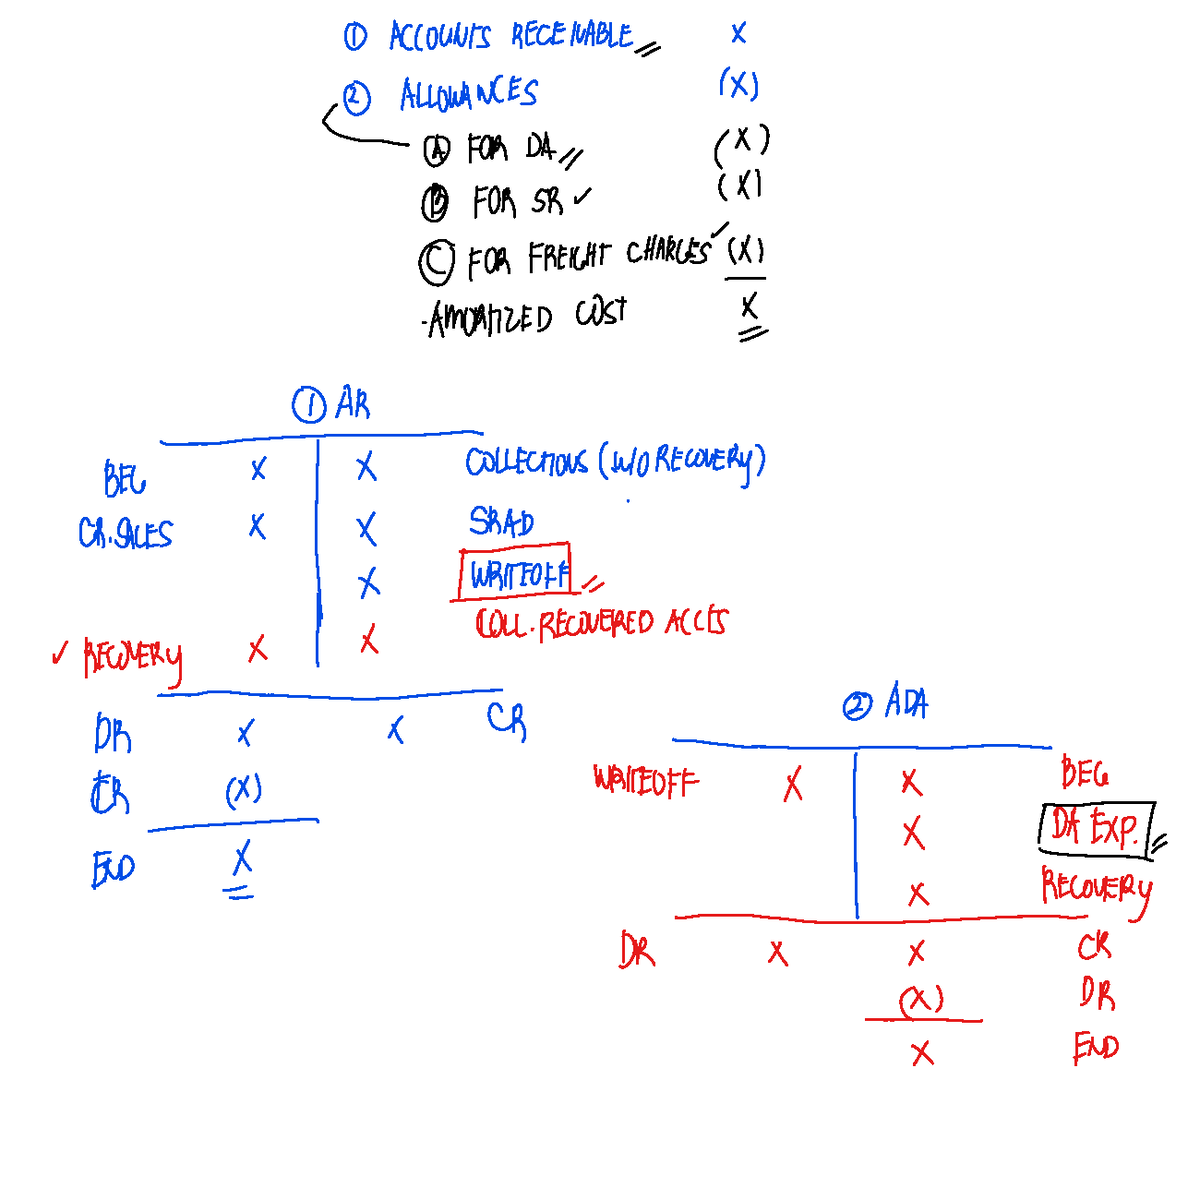 ① ACCOUNTS RECEIVABLE X
② ALLOWANCES (X)
Ⓐ FOR DA (X)
Ⓑ FOR SR ✓ (X)
Ⓒ FOR FREIGHT CHARGES ✓ (X)
-AMORTIZED COST X
① AR
BEG X X COLLECTIONS (W/O RECOVERY)
CR. SALES X X SRAD
X WRITEOFF
✓ RECOVERY X X COLL. RECOVERED ACCTS
DR X X CR
CR (X)
END X
② ADA
WRITEOFF X X BEG
X DA EXP.
X RECOVERY
DR X X CR
(X) DR
X END